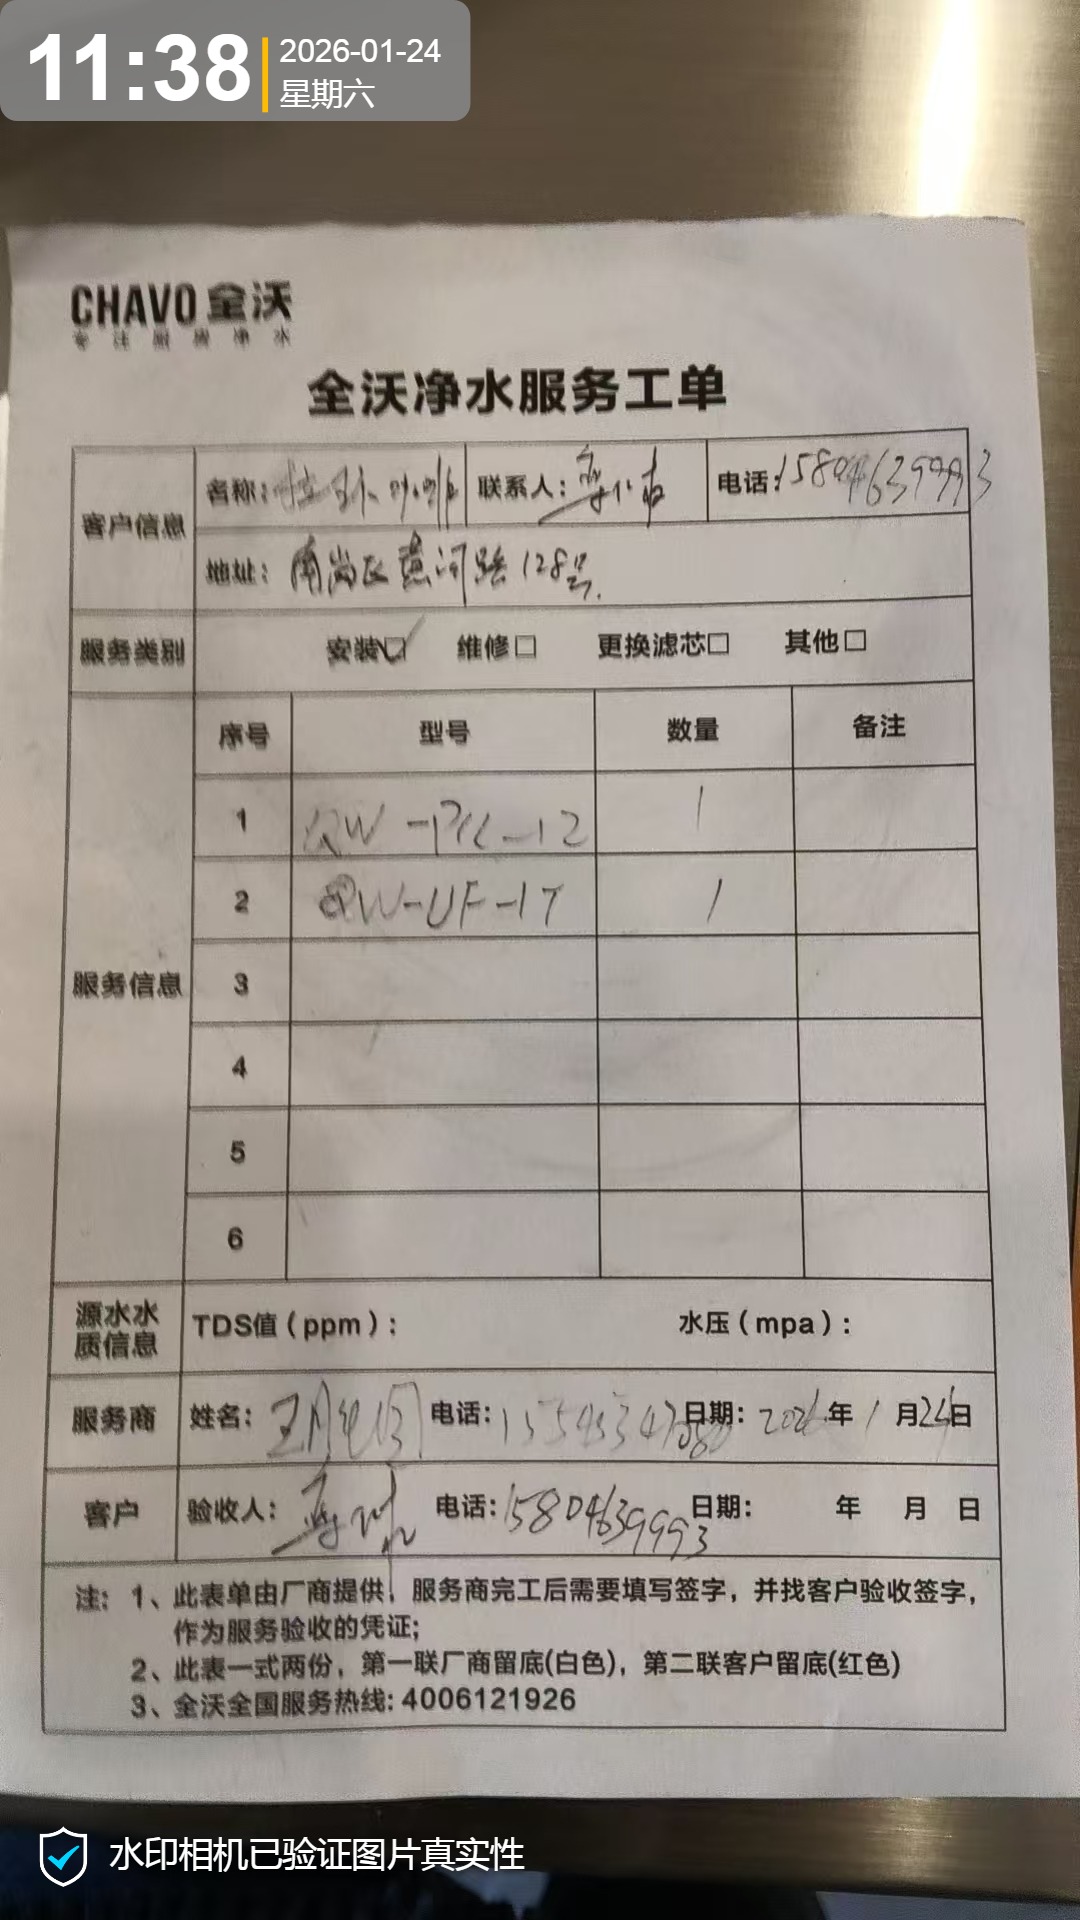 11:38
2026-01-24
星期六
CHAVO 全沃
专注厨房净水
全沃净水服务工单
客户信息
名称: 咖啡
联系人:
电话: 15804639993
地址: 南岗区 河路128号.
服务类别
安装☑ 维修□ 更换滤芯□ 其他□
服务信息
序号 型号 数量 备注
1 QW 12 1
2 QW-UF-1T 1
3
4
5
6
源水水质信息
TDS值(ppm): 水压(mpa):
服务商
姓名: 王 电话: 日期: 2026年1月24日
客户
验收人: 电话: 15804639993 日期: 年 月 日
注: 1、此表单由厂商提供, 服务商完工后需要填写签字, 并找客户验收签字,
作为服务验收的凭证;
2、此表一式两份, 第一联厂商留底(白色), 第二联客户留底(红色)
3、全沃全国服务热线: 4006121926
水印相机已验证图片真实性